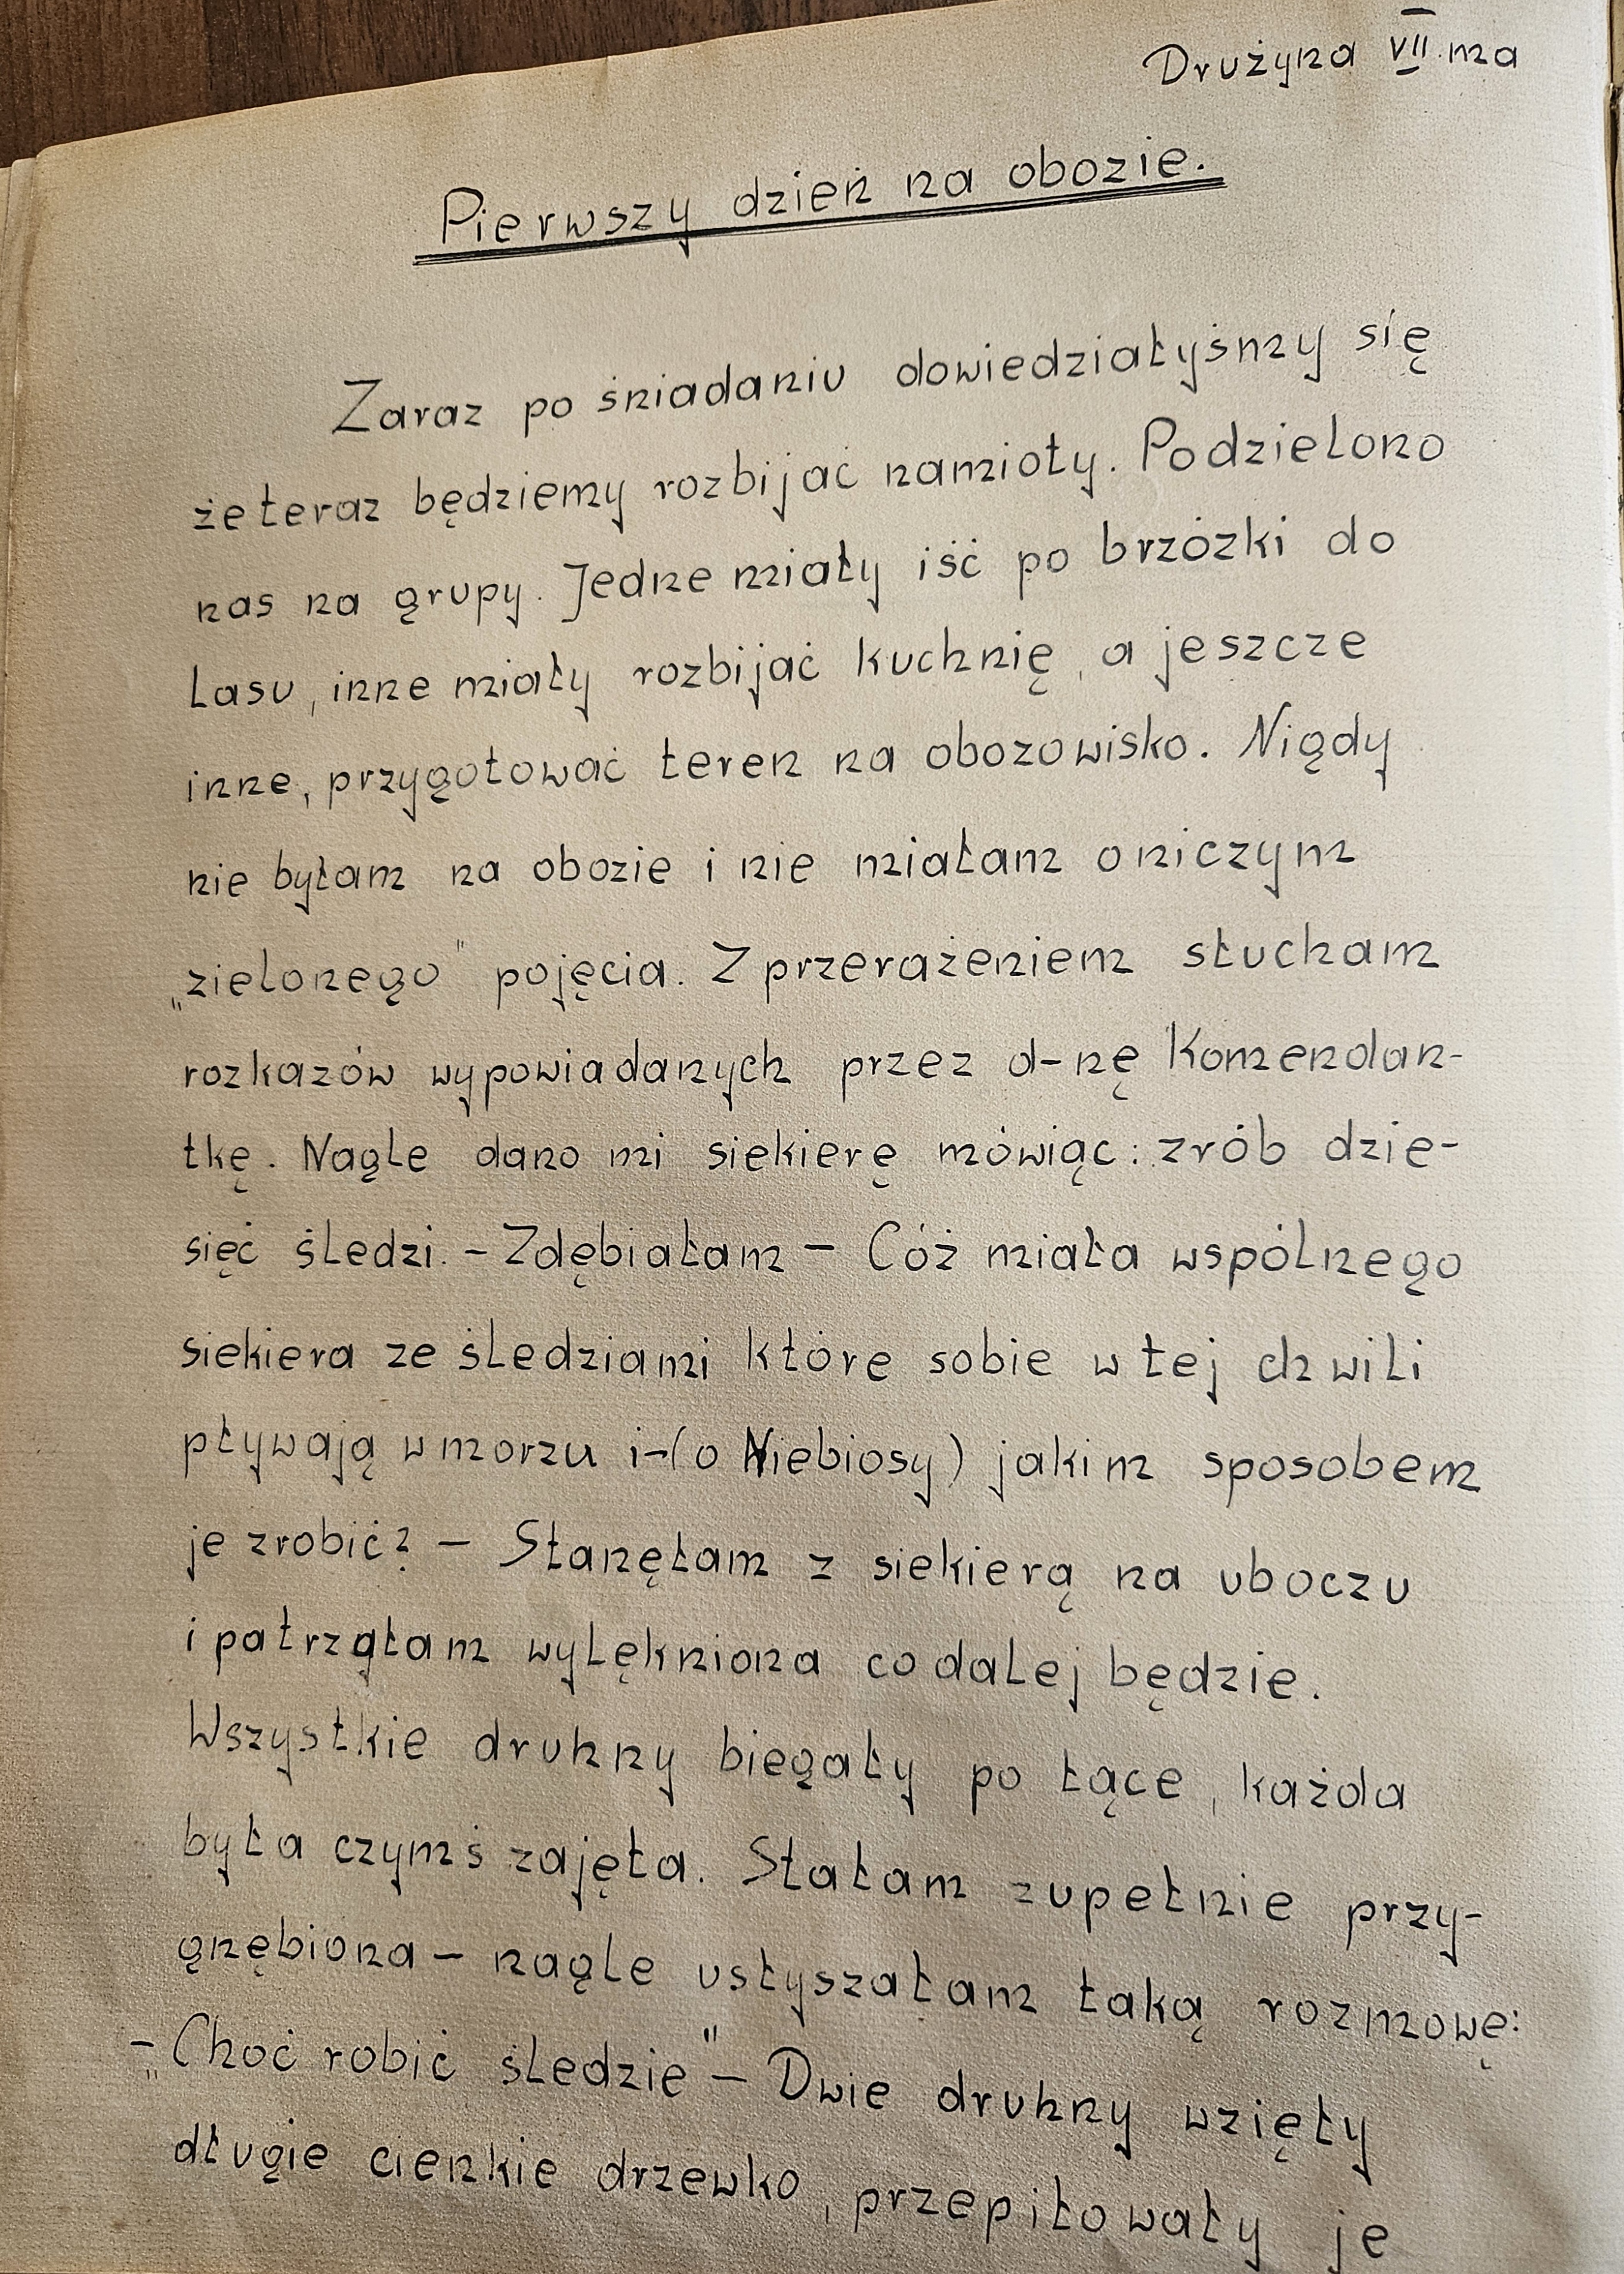 Drużyna VII ma
Pierwszy dzień na obozie.
Zaraz po śniadaniu dowiedziałyśmy się
że teraz będziemy rozbijać namioty. Podzielono
nas na grupy. Jedne miały iść po brzózki do
lasu, inne miały rozbijać kuchnię, a jeszcze
inne, przygotować teren na obozowisko. Nigdy
nie byłam na obozie i nie miałam o niczym
„zielonego" pojęcia. Z przerażeniem słucham
rozkazów wypowiadanych przez d-nę Komendan-
tkę. Nagle dano mi siekierę mówiąc: zrób dzie-
sięć śledzi. - Zdębiałam - Cóż miała wspólnego
siekiera ze śledziami które sobie w tej chwili
pływają w morzu i-(o Niebiosy) jakim sposobem
je zrobić? - Stanęłam z siekierą na uboczu
i patrząłam wylękniona co dalej będzie.
Wszystkie druhny biegały po łące, każda
była czymś zajęta. Stałam zupełnie przy-
gnębiona - nagle usłyszałam taką rozmowę:
- „Choć robić śledzie" - Dwie druhny wzięły
długie cienkie drzewko, przepiłowały je